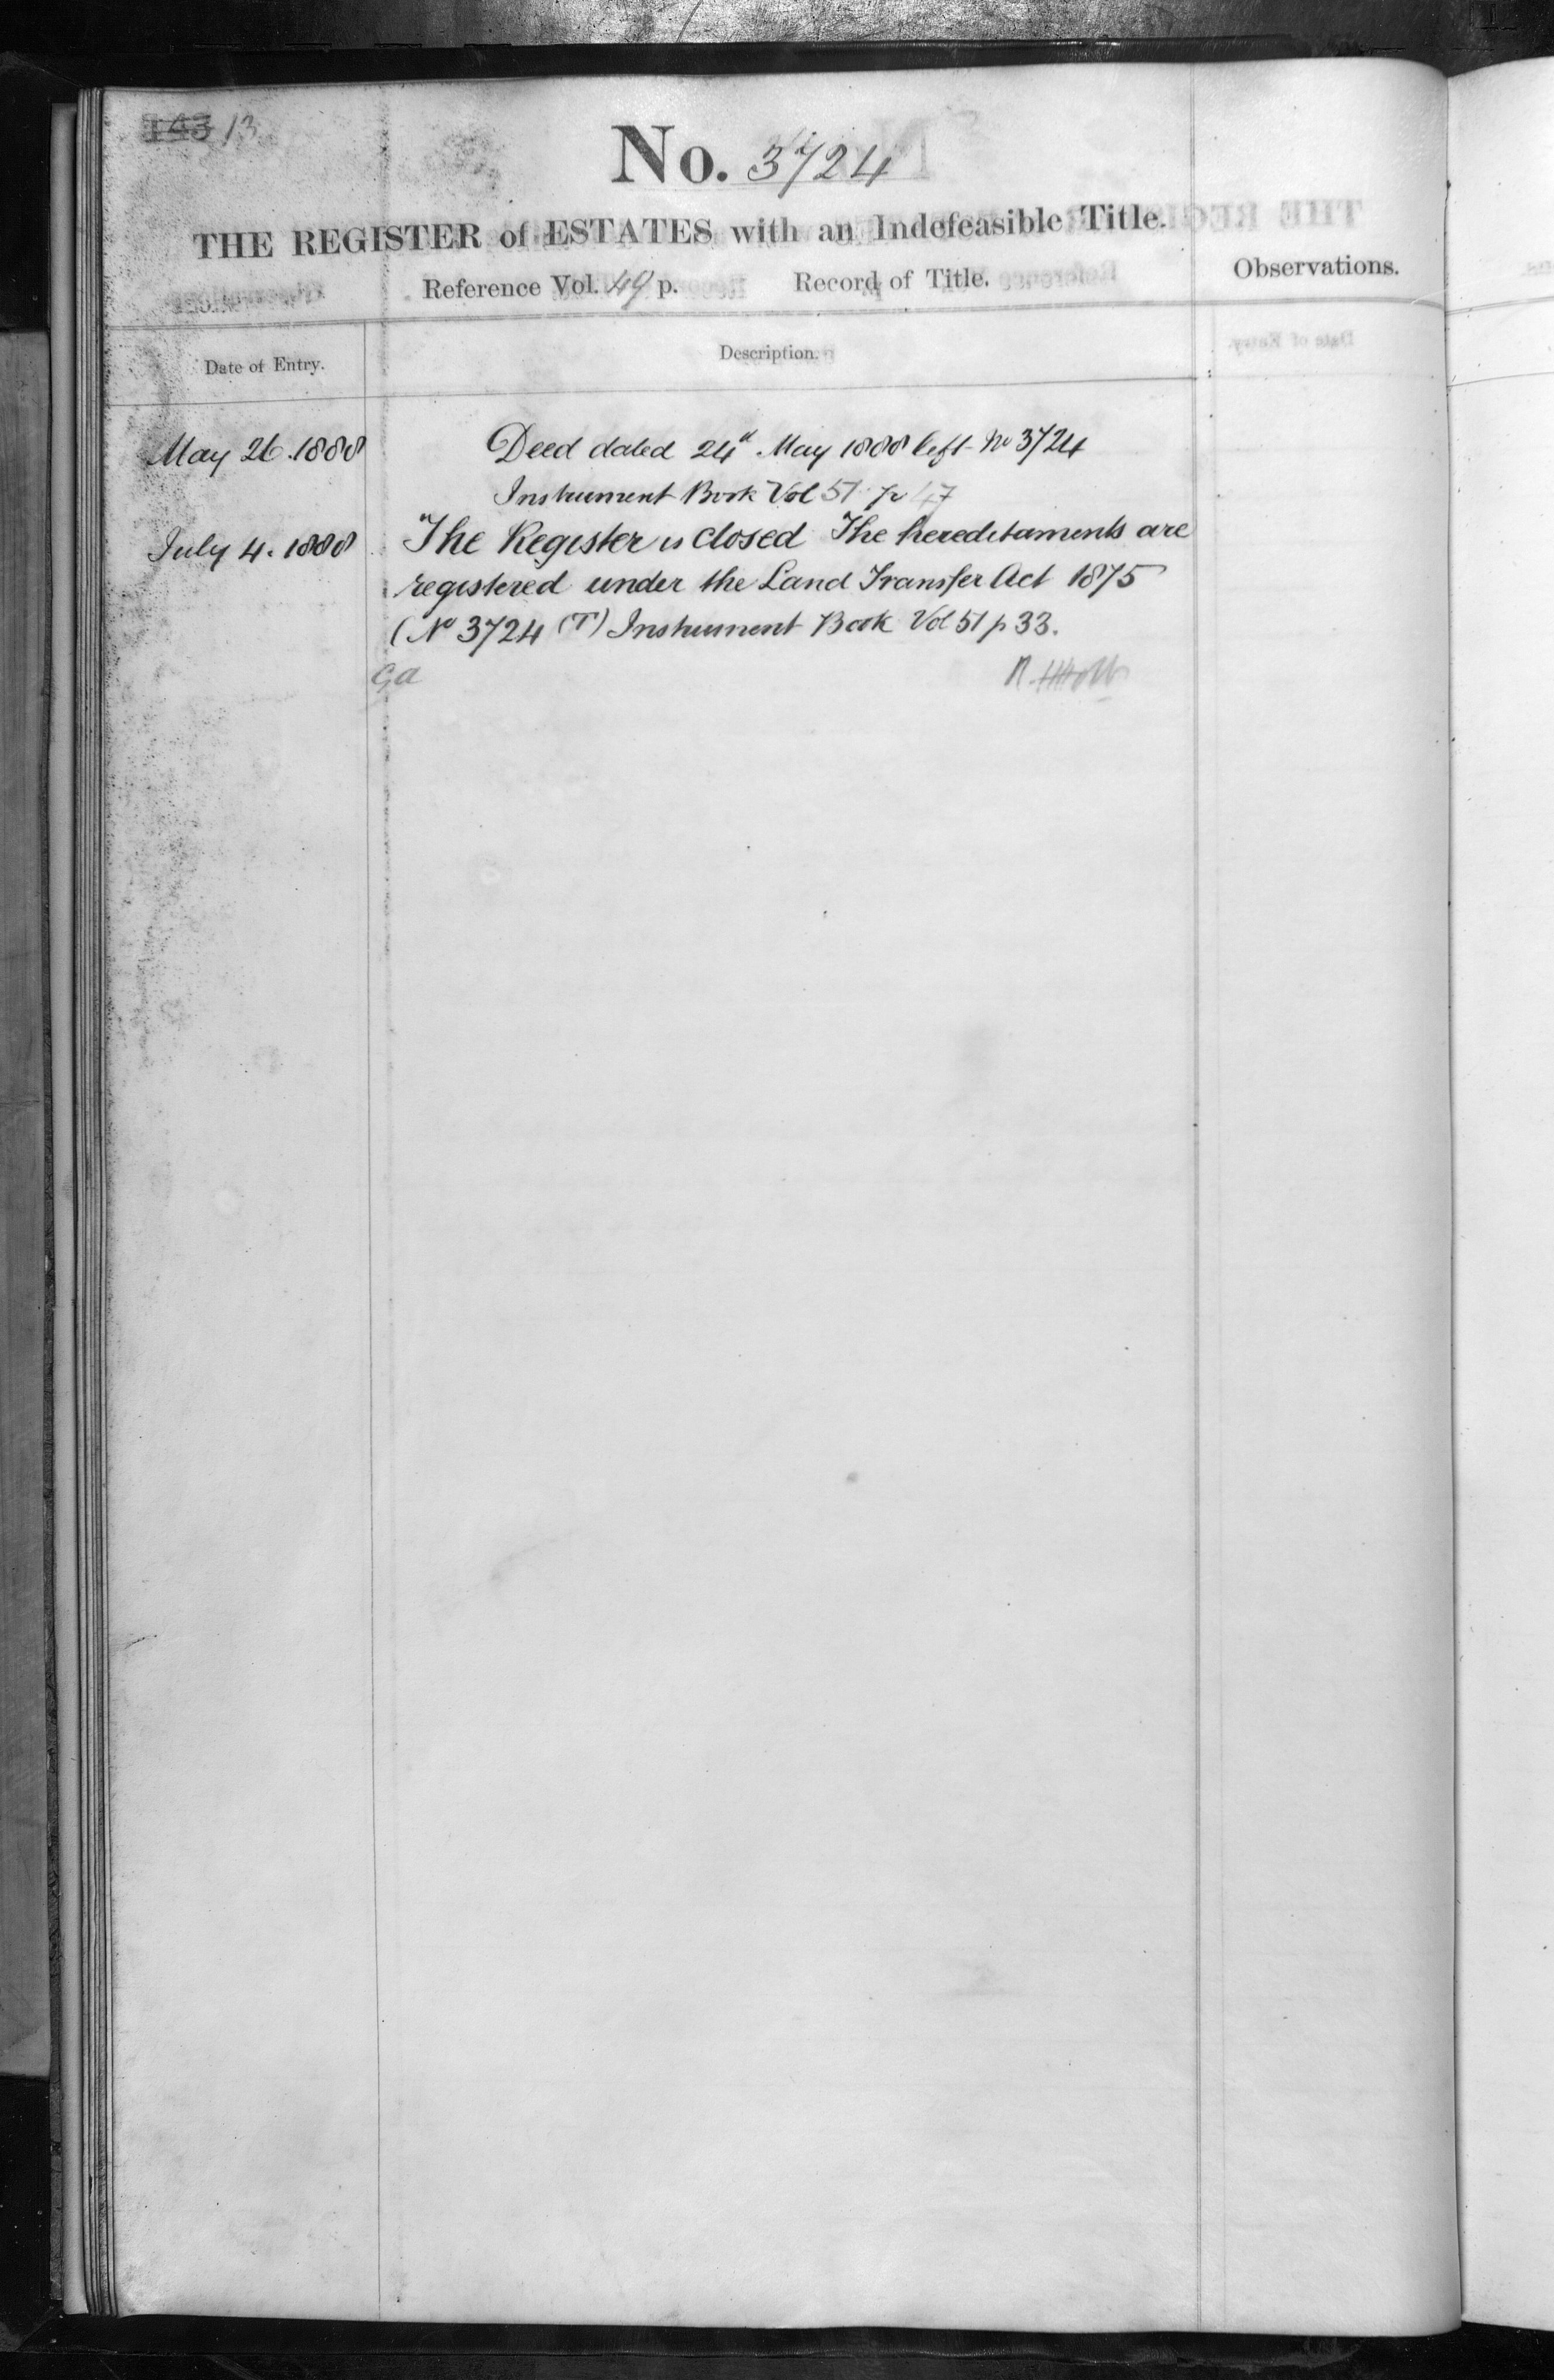 143 13
No. 3724
THE REGISTER of ESTATES with an Indefeasible Title.
Reference Vol. 49 p. Record of Title.
Observations.
Date of Entry.
Description.
May 26. 1888 Deed dated 24th May 1888 left No 3724
Instrument Book Vol 51 p 47
July 4. 1888 The Register is closed The hereditaments are
registered under the Land Transfer Act 1875
(No 3724 (T) Instrument Book Vol 51 p 33.